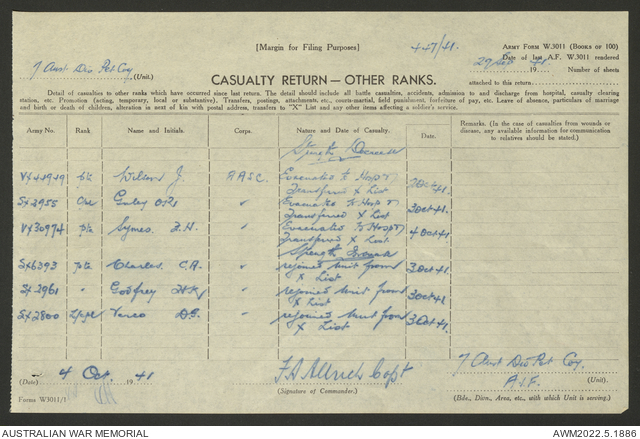 [Margin for Filing Purposes]
447/41.
ARMY FORM W.3011 (BOOKS OF 100)
7 Aust Div Pet Coy (Unit.)
Date of last A.F. W.3011 rendered
29 Sep 1941.
Number of sheets
attached to this return
CASUALTY RETURN — OTHER RANKS.
Detail of casualties to other ranks which have occurred since last return. The detail should include all battle casualties, accidents, admission to and discharge from hospital, casualty clearing
station, etc. Promotion (acting, temporary, local or substantive). Transfers, postings, attachments, etc., courts-martial, field punishment, forfeiture of pay, etc. Leave of absence, particulars of marriage
and birth or death of children, alteration in next of kin with postal address, transfers to "X" List and any other items affecting a soldier's service.
Army No. Rank Name and Initials. Corps. Nature and Date of Casualty. Date. Remarks. (In the case of casualties from wounds or
disease, any available information for communication
to relatives should be stated.)
Strength Decrease
Pte Willson J. AASC. Evacuated to Hosp &
Transferred X List Oct 41.
SX3955 Evacuated to Hosp &
Transferred X List 3 Oct 41.
VX30974 Pte Symes Evacuated to Hosp &
Transferred X List 4 Oct 41
Strength Increase
SX6393 Pte Charles C.A. rejoined Unit from
X List 3 Oct 41.
SX2961 " Godfrey rejoined Unit from
X List 3 Oct 41
SX2800 Vasco D.G. rejoined Unit from
X List 3 Oct 41.
(Date) 4 Oct. 1941
Capt
(Signature of Commander.)
7 Aust Div Pet Coy.
A.I.F. (Unit).
(Bde., Divn., Area, etc., with which Unit is serving.)
Forms W3011/1
AUSTRALIAN WAR MEMORIAL
AWM2022.5.1886